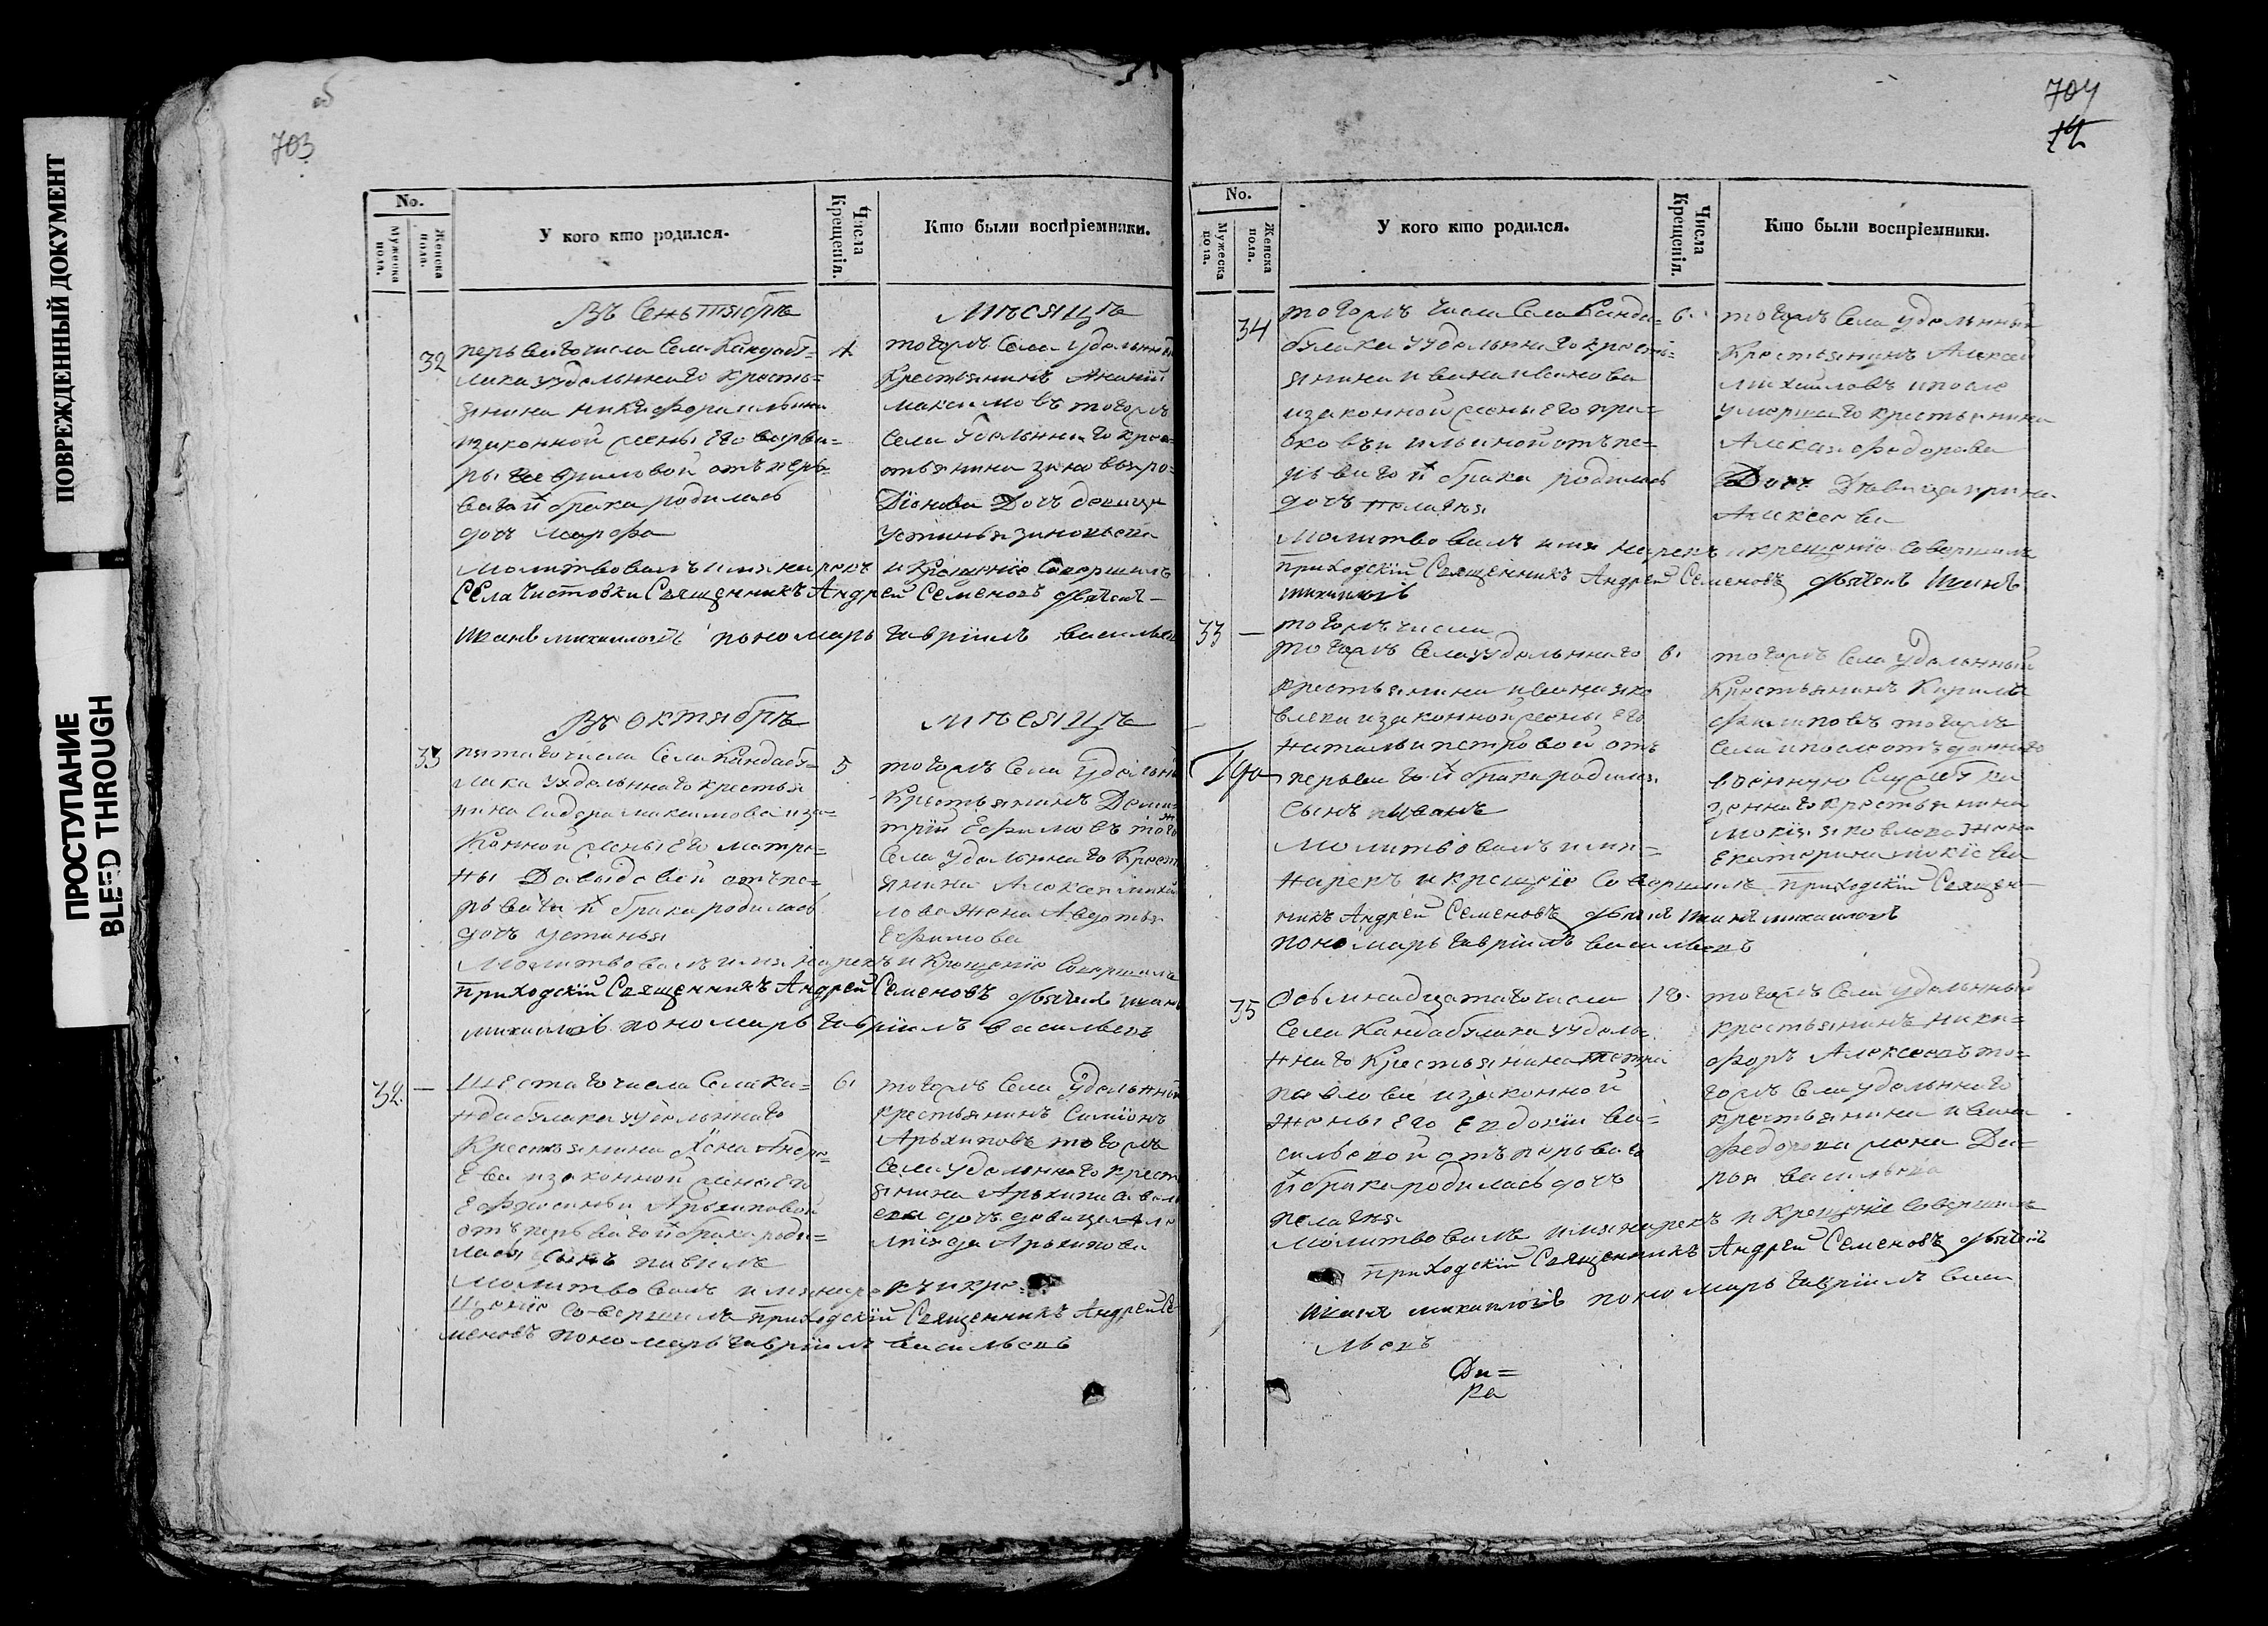 ПОВРЕЖДЕННЫЙ ДОКУМЕНТ
ПРОСТУПАНИЕ
BLEED THROUGH
703
No.
Мужеска пола.
Женска пола.
У кого кто родился.
Числа Крещенія.
Кто были воспріемники.
Въ Сентябрѣ
мѣсяцѣ
32
перваго числа Села Кандабу=
лака удѣльнаго кресть=
янина никифора ильина
иззаконной жены Его варва=
ры Гавриловой отъ перь=
ваго й брака родилась
дочь марфа
4
тогожъ Села удѣльный
Крестьянинъ Ананій
максимовъ тогожъ
Села удѣльнаго крес=
тьянина зиновья ро=
діонова Дочь девица
устинья зиновьева
молитвовалъ имя нарекъ и крещеніе Совершилъ
Села Чистовки Священникъ Андрей Семеновъ дьячекъ
Иванъ михаиловъ пономарь гавріилъ васильевъ
Въ октябрѣ
мѣсяцѣ
33
пятаго числа Села Кандабу=
лака удѣльнаго крестья
нина сидора максимова изза=
Конной жены Его матре=
ны Давыдовой отъ пе=
рьваго й брака родилась
дочь устинья
5
тогожъ Села удѣльный
Крестьянинъ Дими=
трій Ефимовъ тогожъ
Села удѣльнаго Кресть
янина Алексея михай
лова жена Авдотья
Ефимова
молитвовалъ имя нарекъ и Крещеніе Совершилъ
приходскій Священникъ Андрей Семеновъ дьячекъ Иванъ
михаиловъ пономарь гавріилъ васильевъ
32. —
шестаго числа Села Ка=
ндабулака удѣльнаго
Крестьянина Андре=
Ева иззаконной жены Его
Ефросиньи Архиповой
отъ перьваго й брака роди=
лся Сынъ павилъ
6
тогожъ Села удѣльный
крестьянинъ Симіонъ
Архиповъ тогожъ
Села удѣльнаго Кресть
янина Архипа
дочь девица
Архипова
молитвовалъ имя нарекъ и кре=
щеніе Совершилъ приходскій Священникъ Андрей Се
меновъ пономарь гавріилъ васильевъ
704
12
No.
Мужеска пола.
Женска пола.
У кого кто родился.
Числа Крещенія.
Кто были воспріемники.
34
тогожъ числа Села Канда=
булака удѣльнаго кресть=
янина ивана иванова
иззаконной жены Его пра=
сковьи ильиной отъ пе=
рьваго й брака родилась
дочь пелагея
6.
тогожъ Села удѣльный
Крестьянинъ Алексей
михайловъ и после
умершаго крестьянина
Алексея федорова
Дочь Девица ирина
Алексеева
молитвовалъ имя нарекъ и крещеніе Совершилъ
приходскій Священникъ Андрей Семеновъ дьячекъ Иванъ
михаиловъ
33 —
тогожъ числа
тогожъ Села удѣльнаго
крестьянина ивана яко
влева иззаконной жены Его
натальи петровой отъ
перьваго й брака родился
Сынъ иванъ
6.
тогожъ Села удѣльный
Крестьянинъ Кирилъ
филиповъ тогожъ
Села и после отъданнаго
военную Службу ка
зеннаго крестьянина
мокія яковлева жена
Екатерина мокіева
молитвовалъ имя=
нарекъ и крещеніе Совершилъ приходскій Священ=
никъ Андрей Семеновъ дьячекъ Иванъ михаиловъ
пономарь гавріилъ васильевъ
35
Осьмнадцатаго числа
Села Кандабулака удѣль=
ннаго Крестьянина петра
павлова иззаконной
жены Его Евдокіи ва=
сильевой отъ перьваго
й брака родилась дочь
пелагея
18.
тогожъ Села удѣльный
крестьянинъ ники=
форъ Алексеевъ то=
гожъ Села удѣльнаго
крестьянина ивана
федорова жена Да=
рья васильева
молитвовалъ имя нарекъ и крещеніе Совершилъ
приходскій Священникъ Андрей Семеновъ дьячекъ
Иванъ михаиловъ пономарь гавріилъ васи
льевъ